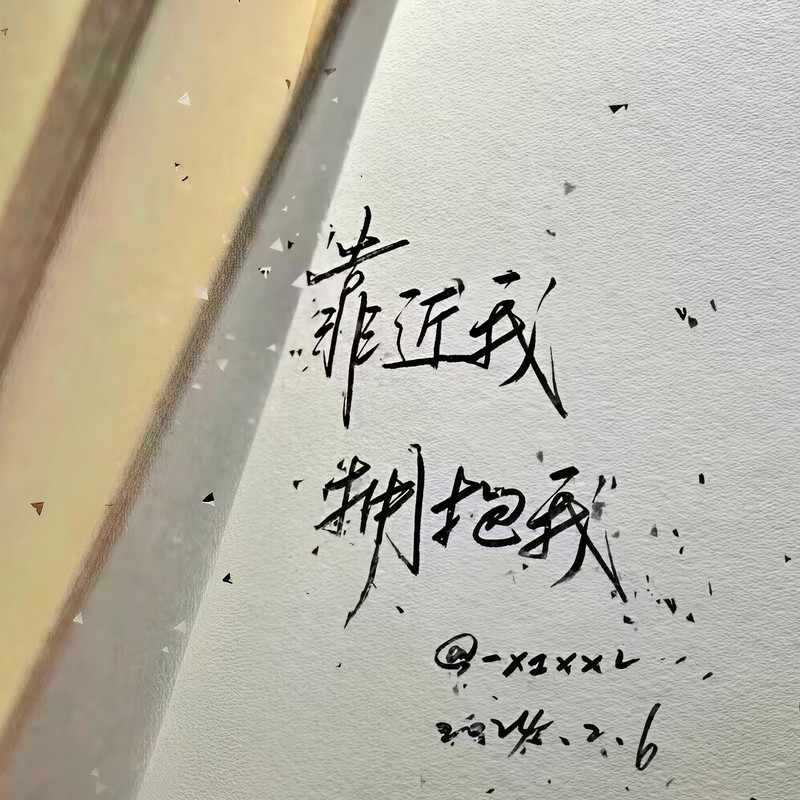 靠近我
拥抱我
@-x1xxL
2024.2.6